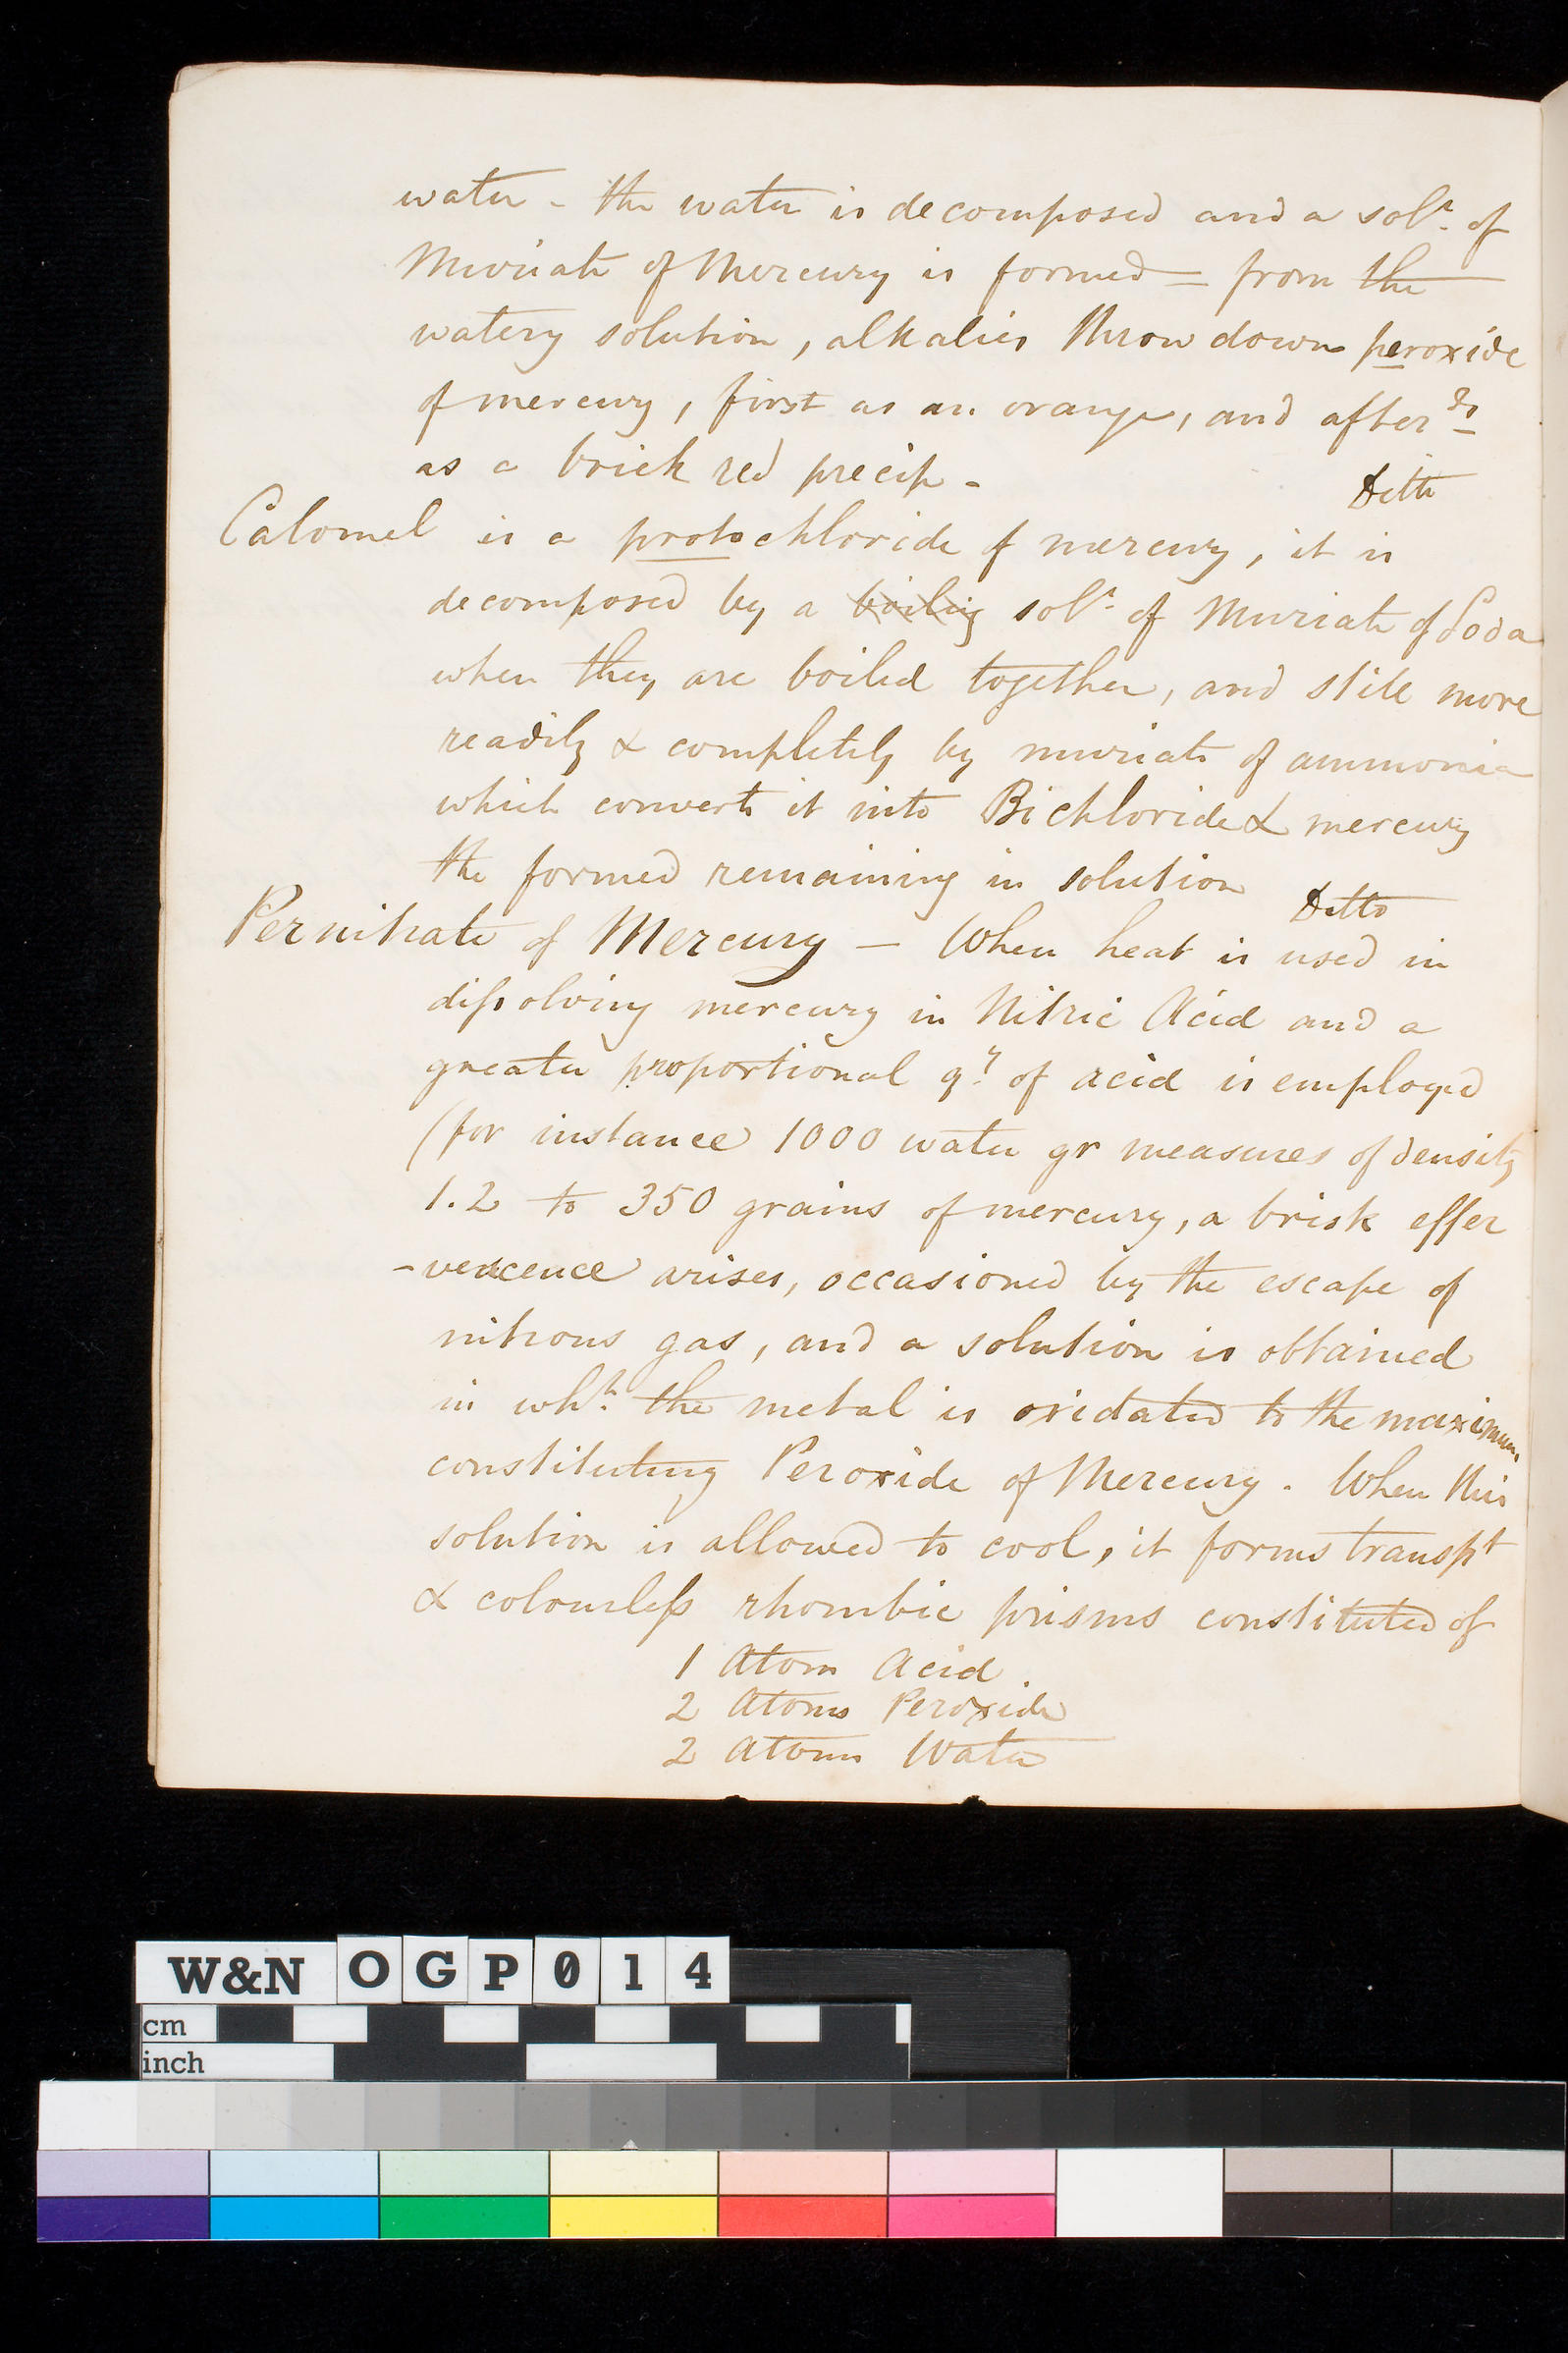 water - the water is decomposed and a solⁿ. of
Muriate of Mercury is formed = from the
watery solution, alkalies throw down peroxide
of mercury, first as an orange, and afterds
as a brick red precip -
Ditto
Calomel is a protochloride of mercury, it is
decomposed by a boiling solⁿ. of Muriate of Soda
when they are boiled together, and still more
readily & completely by muriate of ammonia
which converts it into Bichloride & mercury
the formed remaining in solution
Ditto
Pernitrate of Mercury — When heat is used in
dissolving mercury in Nitric Acid and a
greater proportional qy. of acid is employed
(for instance 1000 water gr measures of density
1.2 to 350 grains of mercury, a brisk effer
-vescence arises, occasioned by the escape of
nitrous gas, and a solution is obtained
in whh. the metal is oxidated to the maximum
constituting Peroxide of Mercury. When this
solution is allowed to cool, it forms transpt
& colourless rhombic prisms constituted of
1 Atom Acid
2 Atoms Peroxide
2 Atoms Water
W&N OGP014
cm
inch